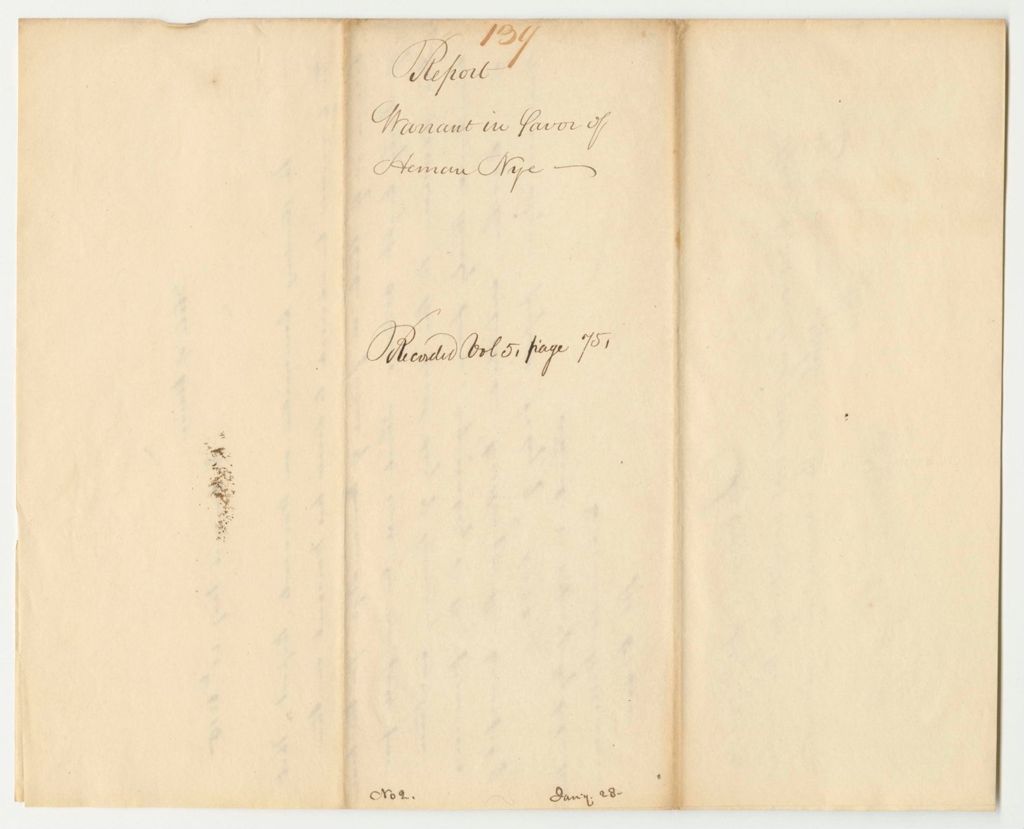 139
Report
Warrant in favor of
Heman Nye —
Recorded Vol 5, page 75,
No 2. Jany. 28-